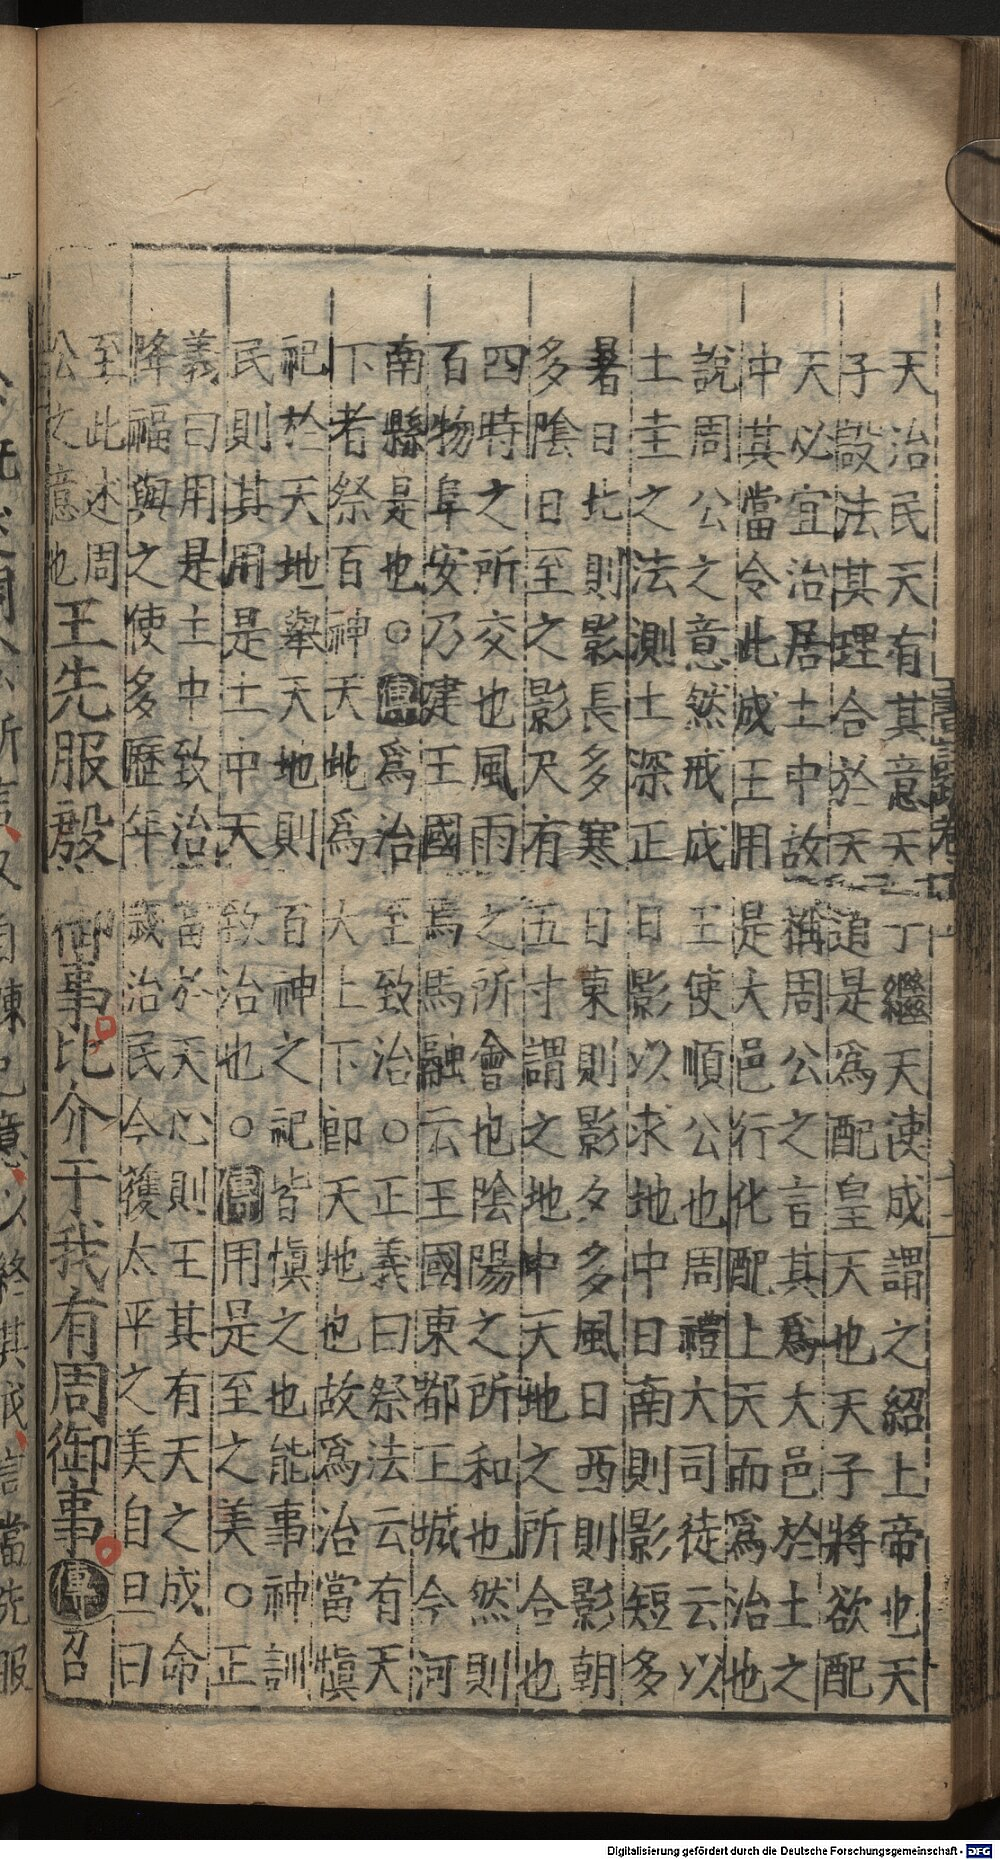 天治民天有其意天天子繼天使成謂之紹上帝也天
子設法其理合於天道是爲配皇天也天子將欲配
天必宜治居土中故稱周公之言其爲大邑於土之
中其當令此成王用是大邑行化配上天而爲治也
說周公之意然戒成王使順公也周禮大司徒云以
土圭之法測土深正日影以求地中日南則影短多
暑日北則影長多寒日東則影夕多風日西則影朝
多陰日至之影尺有五寸謂之地中天地之所合也
四時之所交也風雨之所會也陰陽之所和也然則
百物阜安乃建王國焉馬融云王國東都王城今河
南縣是也○傳爲治至致治○正義曰祭法云有天
下者祭百神天地爲大上下即天地也故爲治當愼
祀於天地舉天地則百神之祀皆愼之也能事神訓
民則其用是土中天致治也○傳用是至之美○正
義曰用是土中致治當於天心則王其有天之成命
降福與之使多歷年歲治民今獲太平之美自旦曰
至此述周
公之意也王先服殷御事比介于我有周御事傳召
書疏卷
Digitalisierung gefördert durch die Deutsche Forschungsgemeinschaft - DFG